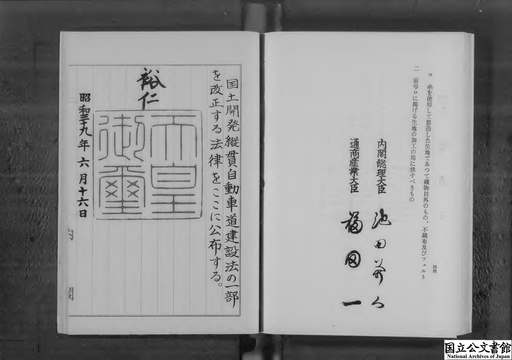 ロ 糸を使用して製造した生地であつて織物以外のもの、不織布及びフェルト
二 前号ロに掲げる生地の加工の用に供すべきもの
内閣総理大臣 池田勇人
通商産業大臣 福田一
国土開発縦貫自動車道建設法の一部
を改正する法律をここに公布する。
裕仁
天皇
御璽
昭和三十九年六月十六日
国立公文書館
National Archives of Japan